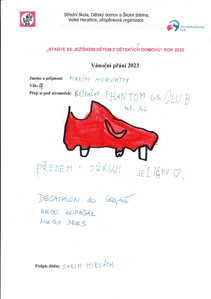 Střední škola, Dětský domov a Školní jídelna,
Velké Heraltice, příspěvková organizace
„STAŇTE SE JEŽÍŠKEM DĚTEM Z DĚTSKÝCH DOMOVŮ“ ROK 2023
Vánoční přání 2023
Jméno a příjmení: MAXIM HORVÁTH
Věk: 9
Přeji si pod stromeček: KOPAČKY PHANTOM GX CLUB
vel. 32
PŘEDEM DĚKUJI JEŽÍŠKU
DECATHLON do
NEBO KOPAČÁK
NEBO
Podpis dítěte: MAXIM HORVÁTH